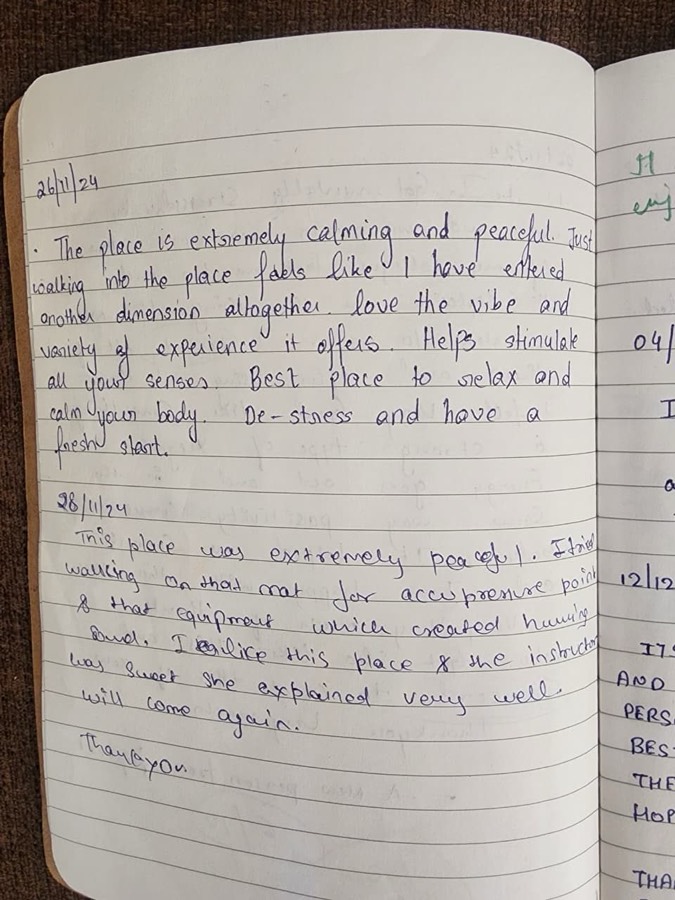 26/11/24
. The place is extremely calming and peaceful. Just
walking into the place feels like I have entered
another dimension altogether. love the vibe and
variety of experience it offers. Helps stimulate
all your senses. Best place to relax and
calm your body. De-stress and have a
fresh start.
28/11/24
This place was extremely peaceful. I tried
walking on that mat for accupressure point
& that equipment which created huming
sound. I this place & the instructor
was sweet she explained very well.
will come again.
Thank you.
04/
I
a
12/12
ITS
AND
PERS
BES
THE
HOP
THA